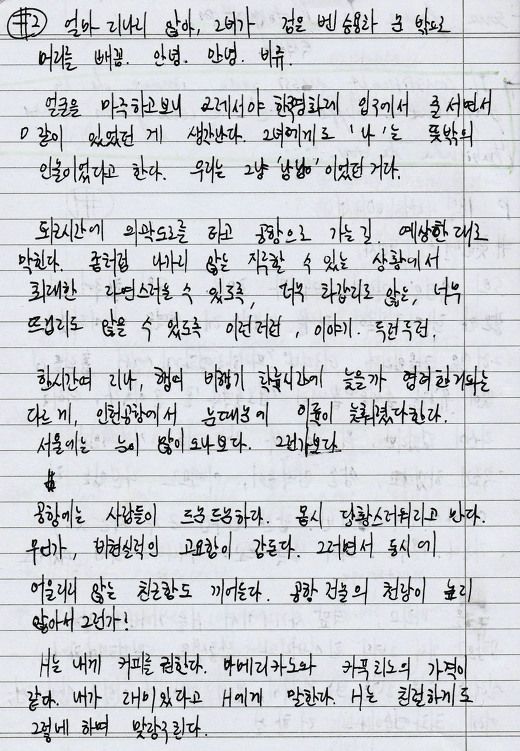 #2 얼마 지나지 않아, 그녀가 검은 벤 승용차 문 밖으로
머리를 빼꼼. 안녕. 안녕. 비쥬.
얼굴을 마주하고보니 그제서야 한국영화제 입구에서 줄 서면서
같이 있었던 게 생각난다. 그녀에게도 '나'는 뜻밖의
인물이었다고 한다. 우리는 그냥 '남남'이었던 거다.
퇴근시간에 외곽도로를 타고 공항으로 가는 길. 예상한 대로
막힌다. 좀처럼 나가지 않는 지루할 수 있는 상황에서
최대한 자연스러울 수 있도록, 너무 차갑지도 않은, 너무
뜨겁지도 않을 수 있도록 이런저런, 이야기. 두런두런.
한시간여 지나, 행여 비행기 착륙시간에 늦을까 염려한거와는
다르게, 인천공항에서 눈때문에 이륙이 늦춰졌다한다.
서울에는 눈이 많이 오나보다. 그런가보다.
공항에는 사람들이 드문드문하다. 몹시 당황스러워지려고 한다.
무언가, 비현실적인 고요함이 감돈다. 그러면서 동시에
어울리지 않는 친근함도 끼어든다. 공항 건물의 천장이 높지
않아서 그런가!
H는 내게 커피를 권한다. 아메리카노와 카푸치노의 가격이
같다. 내가 재미있다고 H에게 말한다. H는 친절하게도
그렇네 하며 맞장구친다.